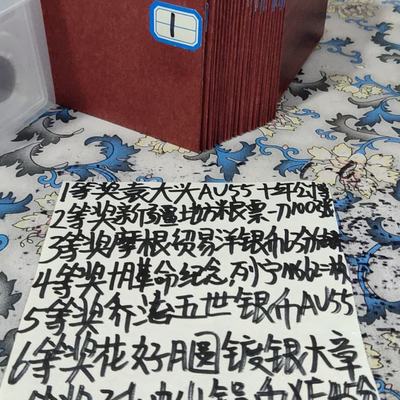 1
1等奖袁大头AU55十年公博
2等奖新疆地方粮票一刀100张
3等奖摩根贸易洋银币
4等奖十月革命纪念,列宁MS62一枚
5等奖乔治五世银币AU55
6等奖花好月圆镀银大章